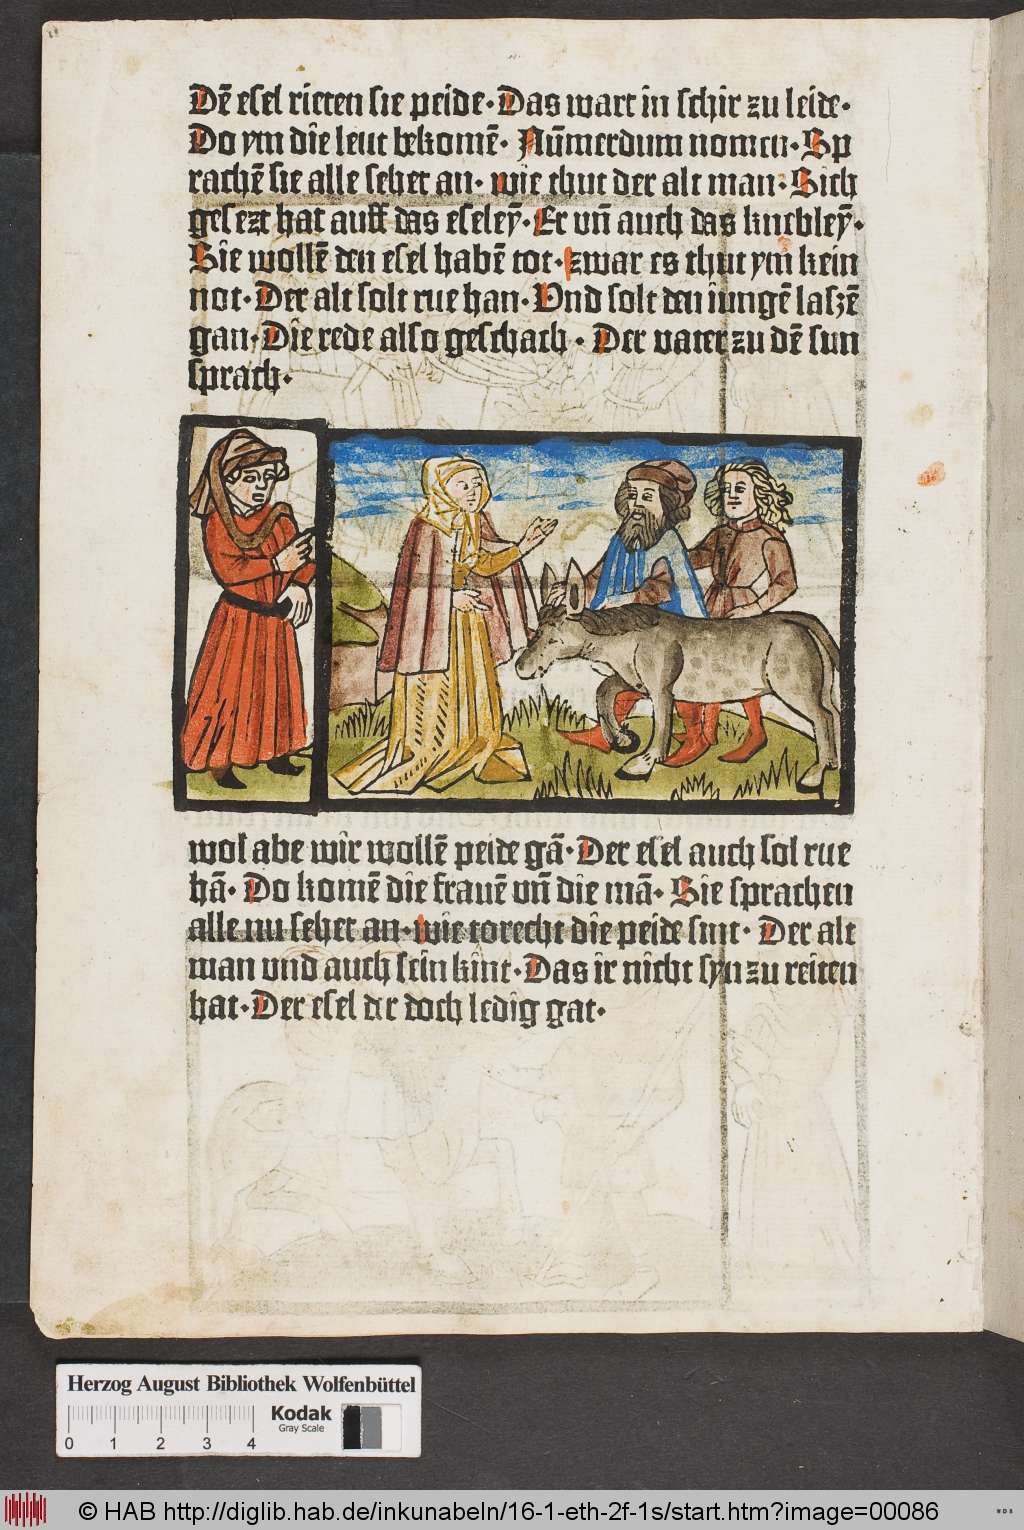 Dē esel rieten sie peide· Das wart in schir zu leide·
Do ym die leut bekomē· Nūmerdum nomen· Sp
rachē sie alle sehet an· wie thut der alt man· Sich
gesezt hat auff das eseley̅· Er vn̄ auch das knebley̅·
Sie wollē den esel habē tot· zwar es thut ym kein
not· Der alt solt rue han· Vnd solt den iungē laszē
gan· Die rede also geschach· Der vater zu dē sun
sprach·
wol abe wir wollē peide gā· Der esel auch sol rue
hā· Do komē die frauē vn̄ die mā· Sie sprachen
alle nu sehet an· wie torecht die peide sint· Der alt
man vnd auch sein kint· Das ir nicht syn zu reiten
hat· Der esel dr doch ledig gat·
Herzog August Bibliothek Wolfenbüttel
Kodak
Gray Scale
0 1 2 3 4
© HAB http://diglib.hab.de/inkunabeln/16-1-eth-2f-1s/start.htm?image=00086